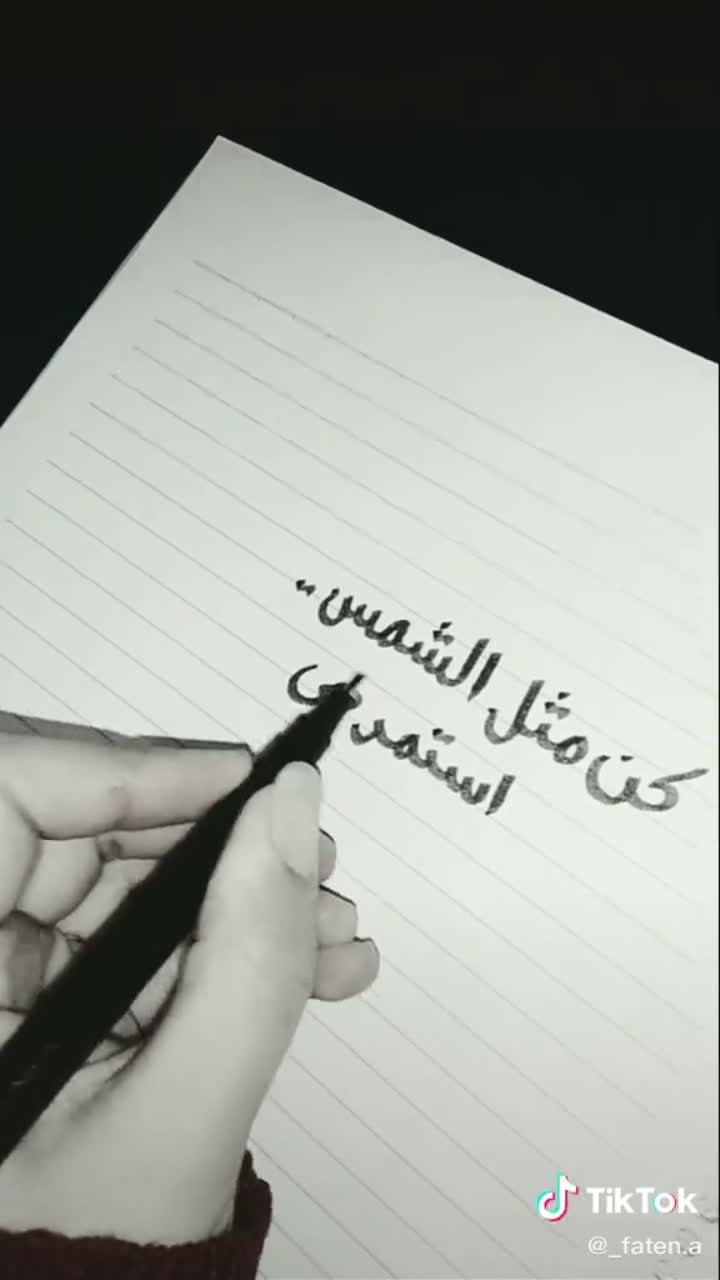 كن مثل الشمس..
استمر في
TikTok
@_faten.a